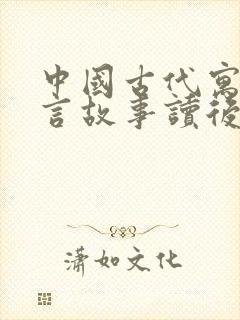 中國古代寓
言故事讀後
瀟如文化